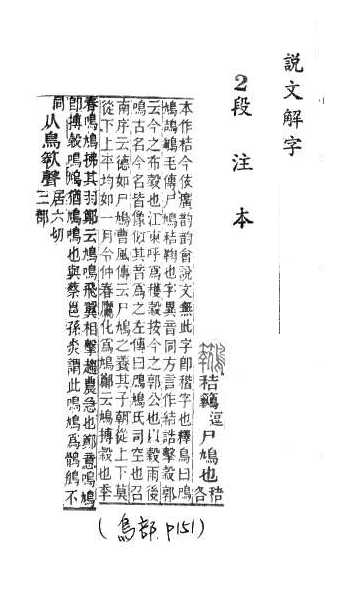 說文解字
2段注本
秸逗尸鳩也秸各
本作桔今依廣韵韵會說文無此字卽稭字也釋鳥曰鳲
鳩鴶鵴毛傳尸鳩秸鞠也字異音同方言作結誥擊穀郭
云今之布穀也江東呼爲穫穀按今之郭公也以穀雨後
鳴古名今名皆像似其音爲之左傳曰鳲鳩氏司空也召
南序云德如尸鳩曹風傳云尸鳩之養其子朝從上下莫
從下上平均如一月令仲春鷹化爲鳩鄭云鳩搏穀也季
春鳴鳩拂其羽鄭云鳴鳩飛翼相擊趨農急也鄭意鳴鳩
卽搏穀鳴鳩猶鳲鳩也與蔡邕孫炎謂此鳴鳩爲鶻鵃不
同从鳥聲居六切三部
(鳥部 P151)